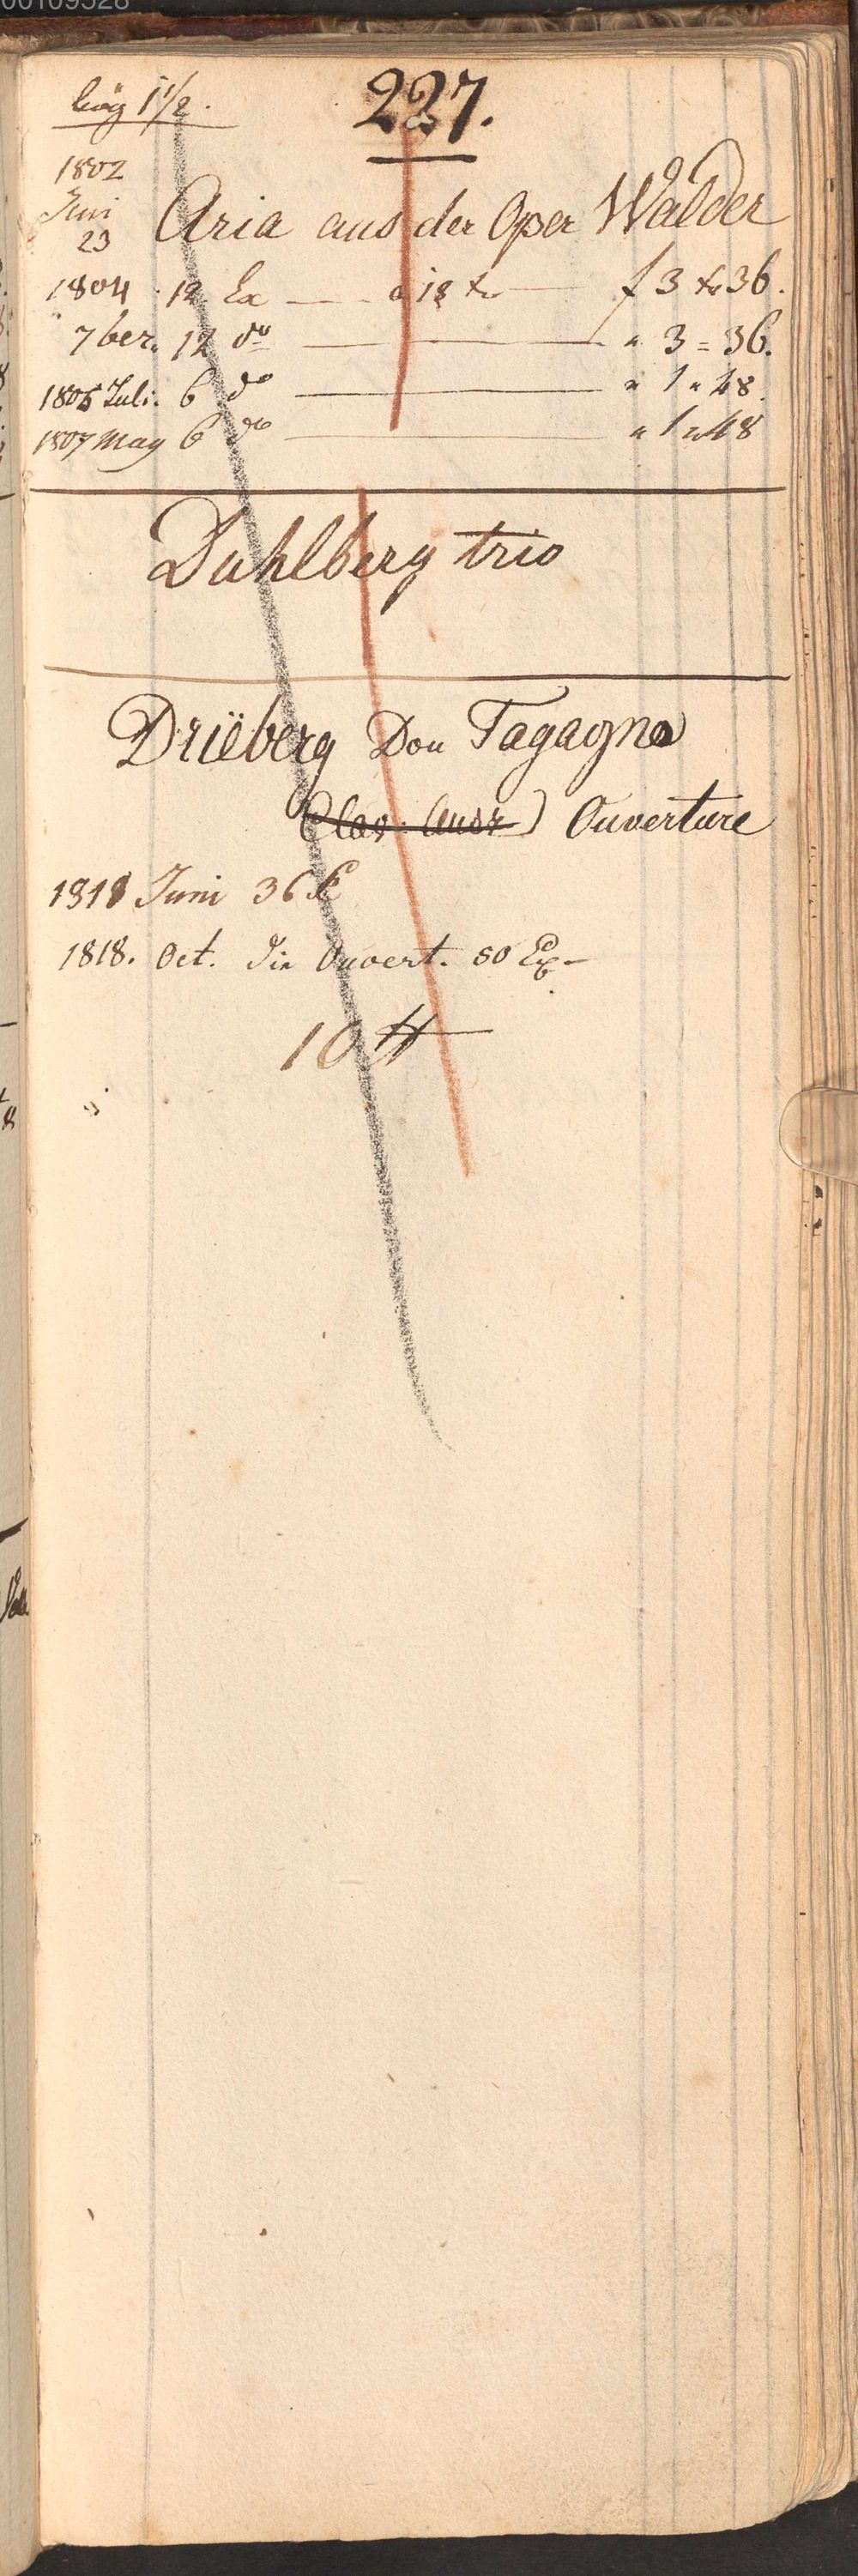 00109528
bög 1 1/2.
227.
1802
Juni
23
Aria aus der Oper Walder
1804 12 Ex — a 18 xr — f 3 xr 36.
7ber. 12 do — " 3 = 36.
1806 Juli. 6 do — " 1 " 48.
1807 May 6 do — " 1 " 48
Dahlberg trio
Driëberg Don Tagagno
Clav. Ausz) Ouverture
1818 Juni 36 Ex
1818. Oct. Die Ouvert. 50 Ex.
10 #